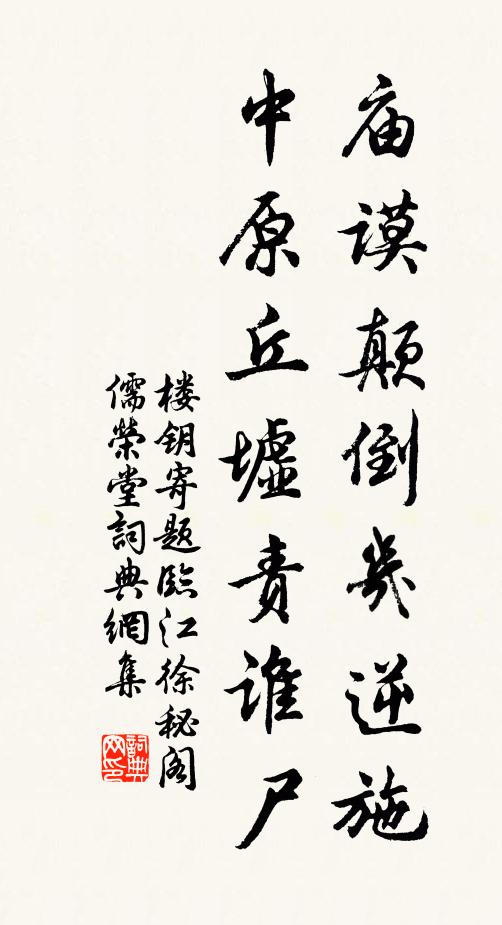 庙謨颠倒几逆施
中原丘墟责谁尸
楼钥寄题临江徐秘阁
儒荣堂詞典網集
詞典
网印